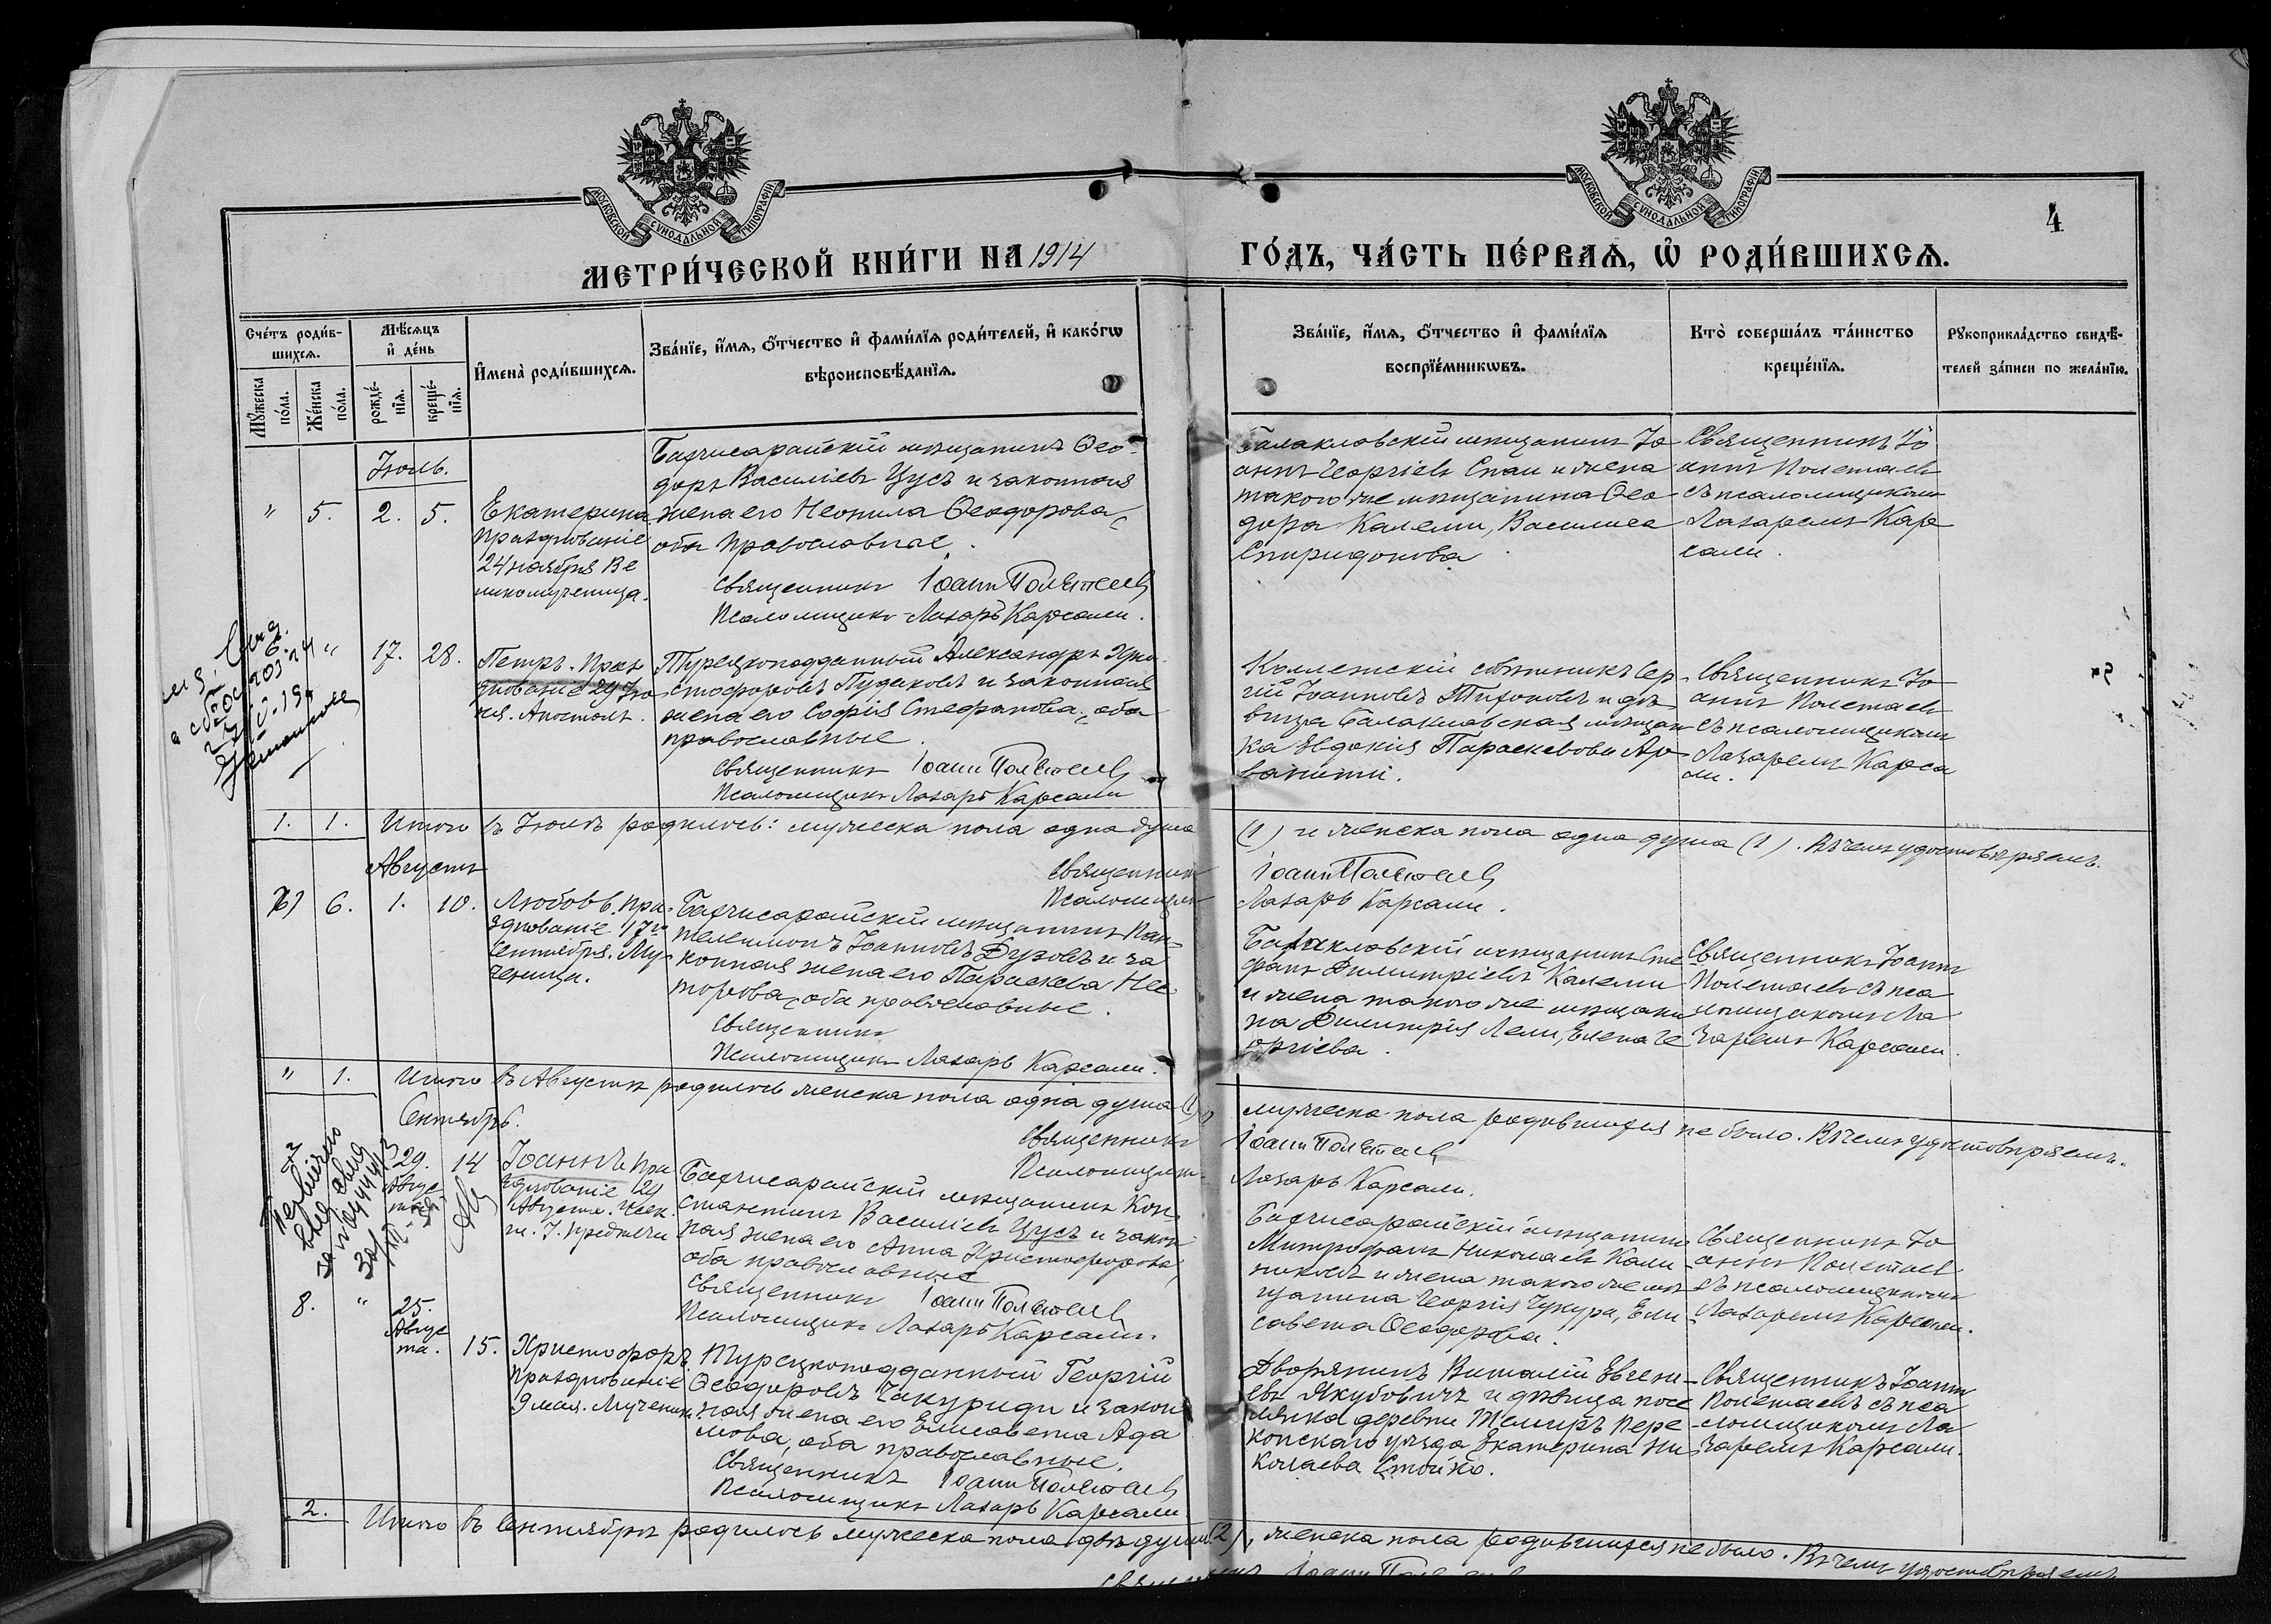 МОСКОВСКОЙ СѴНОДАЛЬНОЙ ТИПОГРАФІИ
МОСКОВСКОЙ СѴНОДАЛЬНОЙ ТИПОГРАФІИ
4
МЕТРИ́ЧЕСКОЙ КНИ́ГИ НА 1914
ГО́ДЪ, ЧА́СТЬ ПЕ́РВАѦ, Ѽ РОДИ́ВШИХСѦ.
Сче́тъ роди́в-
шихсѧ.
Мѣ́сѧцъ
и҆ де́нь
Мꙋ́жеска
по́ла.
Же́нска
по́ла.
рожде́-
нїѧ.
креще́-
нїѧ.
И҆мена̀ роди́вшихсѧ.
Зва́нїе, и҆́мѧ, ѻ҆́тчество и҆ фами́лїѧ роди́телей, и҆ како́гѡ
вѣроисповѣ́данїѧ.
Зва́нїе, и҆́мѧ, ѻ҆́тчество и҆ фами́лїѧ
воспрїе́мникѡвъ.
Кто̀ соверша́лъ та́инство
креще́нїѧ.
Рꙋкоприкла́дство свидѣ́-
телей за́писи по жела́нїю.
Іюль.
" 5. 2. 5.
Екатерина
празднованіе
24 ноября Ве
ликомученица.
Бахчисарайскій мѣщанинъ Ѳео-
доръ Василіевъ Цусъ и законная
жена его Неонила Ѳеодорова,
оба православные.
Священникъ Іоаннъ Полетаевъ
Псаломщикъ Лазарь Карсали.
Балаклавскій мѣщанинъ Іо
аннъ Георгіевъ Спаи и жена
такого же мѣщанина Ѳео
дора Калеми, Василиса
Спиридонова
Священникъ Іо
аннъ Полетаевъ
съ псаломщикомъ
Лазаремъ Кар
сали.
" 17. 28.
Петръ. Праз
днованіе 29 Ію
ня. Апостолъ.
Турецкоподданный Александръ Хри
стофоровъ Пудаковъ и законная
жена его Софія Стефанова, оба
православные.
Священникъ Іоаннъ Полетаевъ
Псаломщикъ Лазарь Карсали
Коллежскій совѣтникъ Сер
гій Іоанновъ Тихоновъ и дѣ
вица Балаклавская мѣщан
ка Евдокія Параскевова Ар
ванити.
Священникъ Іо
аннъ Полетаевъ
съ псаломщикомъ
Лазаремъ Карса
ли.
1. 1. Итого въ Іюлѣ родилось: мужеска пола одна душа
(1) и женска пола одна душа (1). Въ чемъ удостовѣряемъ.
Священникъ Іоаннъ Полетаевъ
Псаломщикъ Лазарь Карсали.
Августъ
6. 1. 10.
Любовь. Пра
зднованіе 17го
Сентября. Му
ченица.
Бахчисарайскій мѣщанинъ Пан
телеимонъ Іоанновъ Дузовъ и за
конная жена его Параскева Нес
торова, оба православные.
Священникъ
Псаломщикъ Лазарь Карсали.
Балаклавскій мѣщанинъ Сте
фанъ Димитріевъ Калеми
и жена такого же мѣщани
на Димитрія Лели, Елена Ге
оргіева.
Священникъ Іоаннъ
Полетаевъ съ пса
ломщикомъ Ла
заремъ Карсали.
" 1. Итого въ Августѣ родилось женска пола одна душа (1),
мужеска пола родившихся не было. Въ чемъ удостовѣряемъ.
Священникъ Іоаннъ Полетаевъ
Псаломщикъ Лазарь Карсали.
Сентябрь.
29.
Авгус
та
14
Іоаннъ. Пра
зднованіе 29
Августа. Усѣк.
гл. І. Предтечи
Бахчисарайскій мѣщанинъ Кон
стантинъ Василіевъ Цусъ и закон
ная жена его Анна Христофорова,
оба православные
Священникъ Іоаннъ Полетаевъ
Псаломщикъ Лазарь Карсали.
Бахчисарайскій мѣщанинъ
Митрофанъ Николаевъ Кали
никовъ и жена такого же мѣ
щанина Георгія Чукура, Ели
савета Ѳеодорова.
Священникъ Іо
аннъ Полетаевъ
съ псаломщикомъ
Лазаремъ Карсали.
8. " 25.
Авгус
та.
15.
Христофоръ
празднованіе
9 мая. Мученикъ
Турецкоподданный Георгій
Ѳеодоровъ Чакуриди и закон
ная жена его Елисавета Ада
мова, оба православные.
Священникъ Іоаннъ Полетаевъ
Псаломщикъ Лазарь Карсали
Дворянинъ Виталій Евгені
евъ Якубовичъ и дѣвица посе
лянка деревни Темиръ Пере
копскаго уѣзда Екатерина Ни
колаева Стойко.
Священникъ Іоаннъ
Полетаевъ съ пса
ломщикомъ Ла
заремъ Карсали.
2. Итого въ Сентябрѣ родилось мужеска пола двѣ души (2),
женска пола родившихся не было. Въ чемъ удостовѣряемъ.